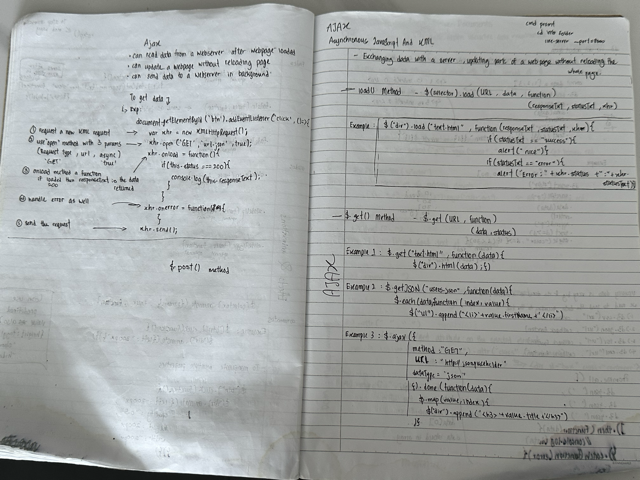 Ajax
• can read data from a webserver after webpage loaded
• can update a webpage without reloading page
• can send data to a webserver in background
To get data }
↳ Exp:
document.getElementById('btn').addEventListener('click', ()=>{
① request a new XML request → var xhr = new XMLHttpRequest();
② use "open" method with 3 params → xhr.open('GET', 'url.json', true);
(Request type, url, async)
'GET' true
xhr.onload = function(){
③ onload method a function
if loaded the responseText is the data
returned
if(this.status == 200){
console.log(this.responseText);
}
}
④ handle error as well → xhr.onerror = function(){
}
⑤ send the request → xhr.send();
$.post() method
AJAX
Asynchronous JavaScript And XML
cmd prompt
cd into folder
live-server --port=
- Exchanging data with a server, updating part of a web page without reloading the
whole page.
- load() Method - $(selector).load(URL, data, function)
(responseTxt, statusTxt, xhr)
Example: $("div").load("text.html", function(responseTxt, statusTxt, xhr){
if(statusTxt == "success"){
alert("nice")}
if(statusTxt == "error"){
alert("Error: " + xhr.status + ":" + xhr.
statusText)}
- $.get() Method - $.get(URL, function)
(data, status)
AJAX
Example 1: $.get("text.html", function(data){
$("div").html(data);})
Example 2: $.getJSON("users.json", function(data){
$.each(data, function(index, value){
$("ul").append("<li>"+value.firstname+"</li>")
Example 3: $.ajax({
method: "GET",
URL:
dataType = "json"
}).done(function(data){
$.map(value, index){
$("div").append("<h3>"+value.title+"</h3>")
})